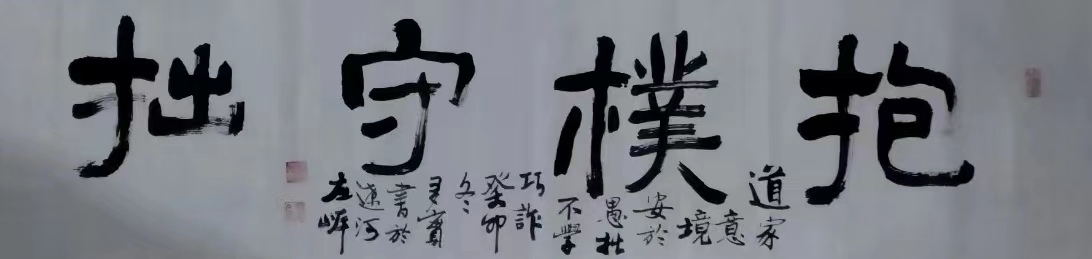 抱樸守拙
道家
意
境
安於
愚拙
不學
巧詐
癸卯
冬
書於
遼河
左岸